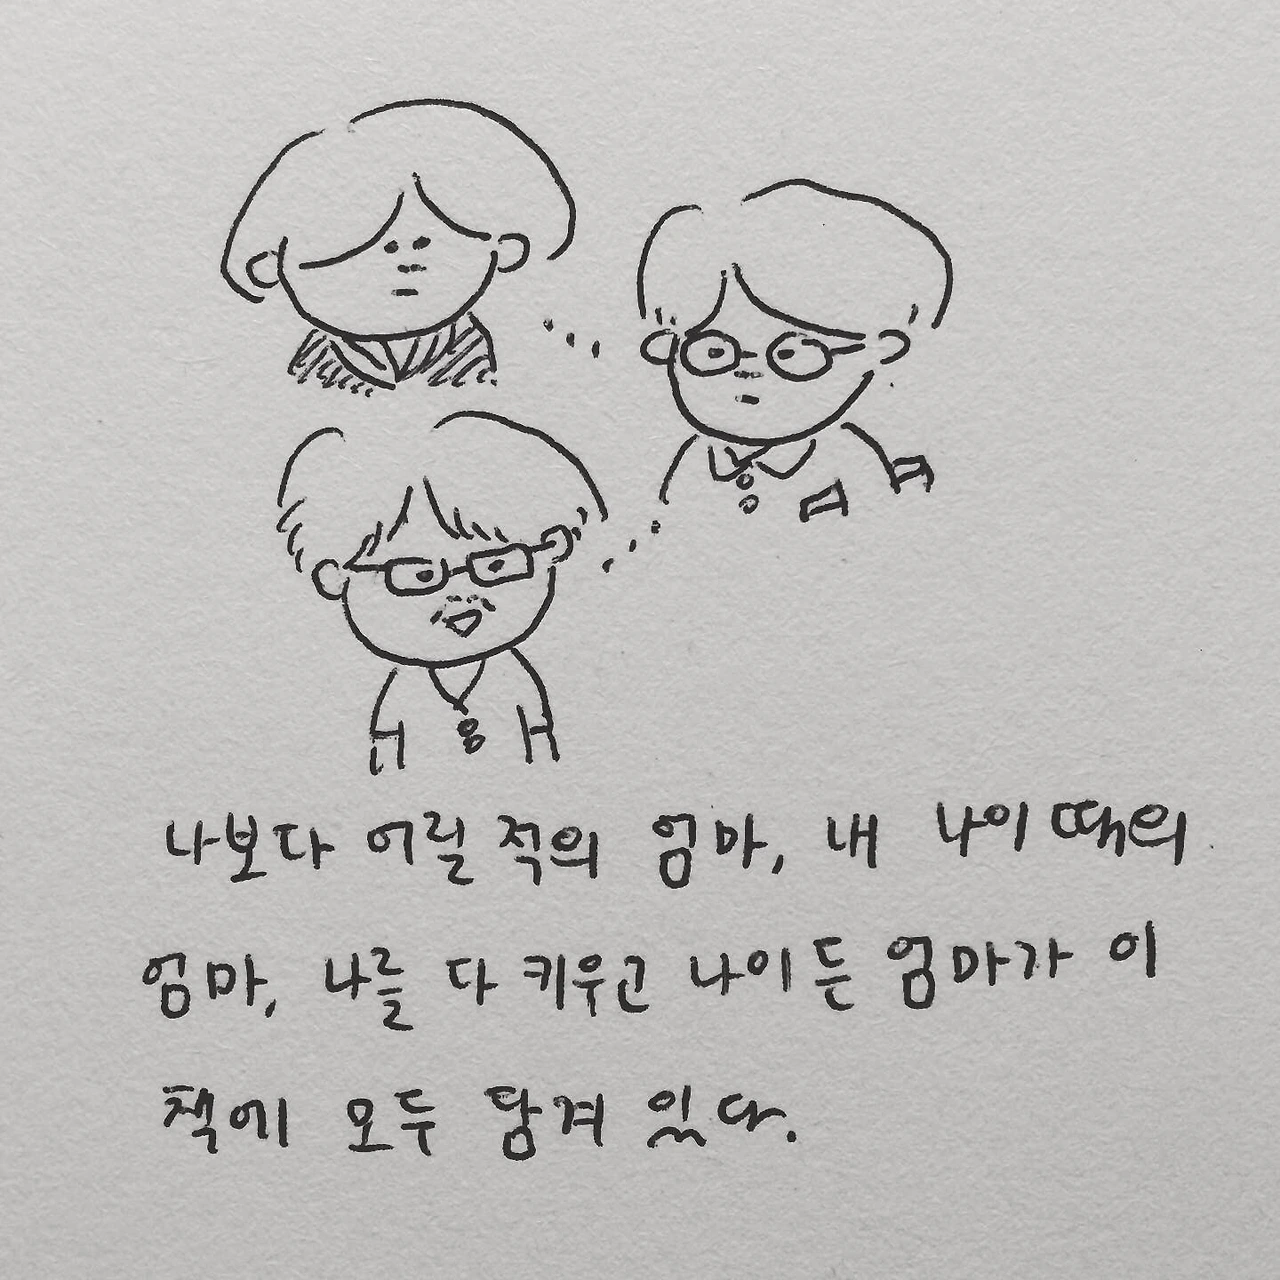 나보다 어릴 적의 엄마, 내 나이 때의
엄마, 나를 다 키우고 나이 든 엄마가 이
책에 모두 담겨 있다.